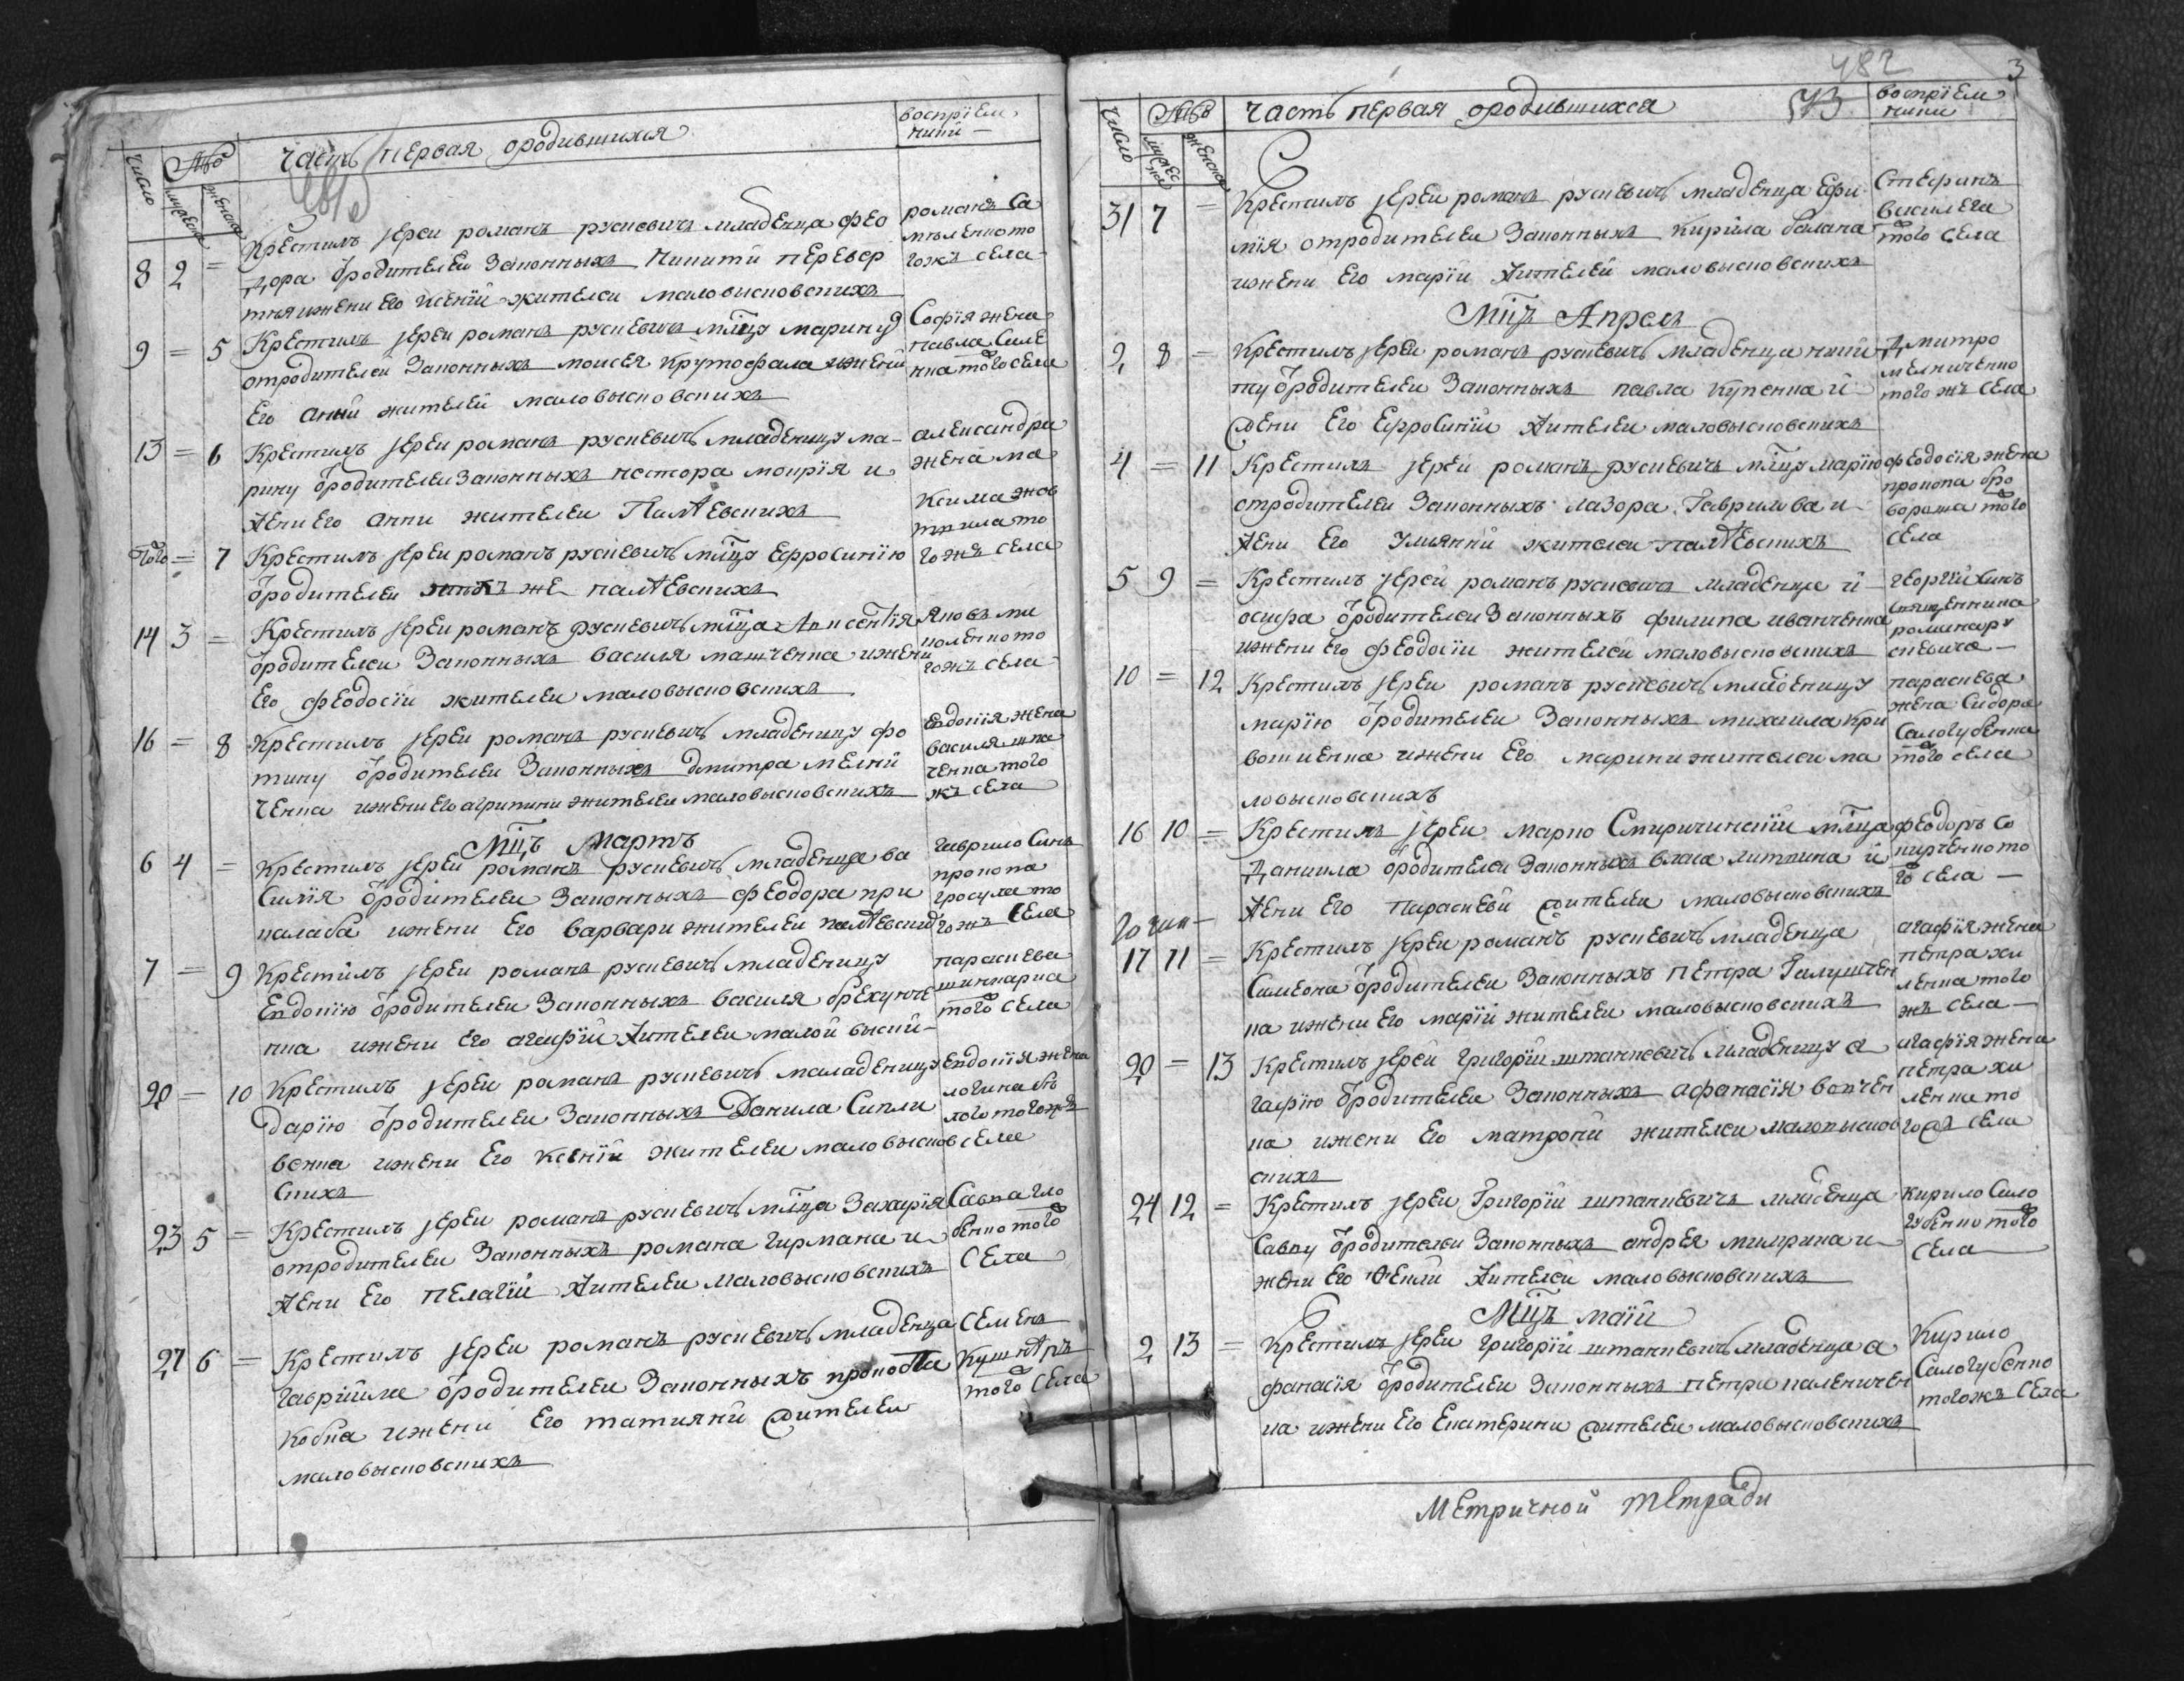 часть первая ородившихся
воспріем
ники
число
мужеска
женска
8 2 = Крестилъ іерей романъ русиевичъ младенца фео
дора ѿродителей законныхъ никити перевер
тня ижени его ксенїи жителей маловысковскихъ
романъ са
мѣленко то
гожъ села
9 = 5 Крестилъ іерей романъ русиевичъ млцу марину
отродителей законныхъ моисея крутофала ижени
его анни жителей маловысковскихъ
Софїя жена
павла силе
нка того села
13 = 6 Крестилъ іерей романъ русиевичъ младеницу ма-
рину ѿродителей законныхъ нестора мокрїя и
жени его анни жителей Палѣевскихъ
александра
жена ма
ксима жов
того = 7 Крестилъ іерей романъ русиевичъ млцу ефросинїю
ѿродителей же палѣевскихъ
гожъ села
14 3 = Крестилъ іерей романъ русиевичъ млца Авксентїя
ѿродителей законныхъ василя ижени
его феодосїи жителей маловысковскихъ
Яковъ ни
коленко то
гожъ села
16 = 8 Крестилъ іерей романъ русиевичъ младеницу фо
тину ѿродителей законныхъ дмитра мелни
ченка ижени его агрипини жителей маловысковскихъ
Евдокїя жена
василя
ченка того
жъ села
Мцъ Мартъ
6 4 = Крестилъ іерей романъ русиевичъ младенца ва
силїя ѿродителей законныхъ феодора при
калаба ижени его варвари жителей палѣевских
гаврило синъ
прокопа
гросула то
гожъ села
7 = 9 Крестилъ іерей романъ русиевичъ младеницу
Евдокїю ѿродителей законныхъ василя брехунче
нка ижени его агафїи жителей малой виски
параскева
шинкарка
того села
20 = 10 Крестилъ іерей романъ русиевичъ маладеницу
дарїю ѿродителей законныхъ Данила Сипли
венка ижени его ксенїи жителей маловысков
скихъ
Евдокїя жена
логина бѣ
лого тогожъ
села
23 5 = Крестилъ іерей романъ русиевичъ млца Захарїя
отродителей законныхъ романа гирмана и
жени его пелагїи жителей маловысковскихъ
Савка гло
бенко того
села
27 6 = Крестилъ іерей романъ русиевичъ младенца
гаврїила ѿродителей законныхъ прокопа
кобка ижени его татияни жителей
маловысковскихъ
Семенъ
Кушнѣръ
того села
482
3
число
мужес
ка
женска
часть первая ородившихся
543
воспріем
ники
31 7 = Крестилъ іерей романъ русиевичъ младенца ефи
мїя отродителей законныхъ кирила балана
ижени его марїи жителей маловысковскихъ
Стефанъ
василега
того села
Мцъ Апрель
2 8 = Крестилъ іерей романъ русиевичъ младенца ники
ту ѿродителей законныхъ павла купенка и
жени его ефросинїи жителей маловысковскихъ
Дмитро
мелниченко
того жъ села
4 = 11 Крестилъ іерей романъ русиевичъ млцу марїю
отродителей законныхъ лазора Гаврилова и
жени его улиянни жителей палѣевскихъ
феодосїя жена
прокопа бро
ворота того
села
5 9 = Крестилъ іерей романъ русиевичъ младенца и
осифа ѿродителей законныхъ филипа иванченка
ижени его феодосїи жителей маловысковскихъ
георгїй синъ
священника
романа ру
сиевича
10 = 12 Крестилъ іерей романъ русиевичъ младеницу
марїю ѿродителей законныхъ михаила кри
вошиенка ижени его марини жителей ма
ловысковскихъ
параскева
жена Сидора
Салогубенка
того села
16 10 = Крестилъ іерей марко Смиричинскїй млца
даниила ѿродителей законныхъ власа литвина и
жени его параскеви жителей маловысковскихъ
феодоръ со
кирченко то
го села
17 11 = Крестилъ іерей романъ русиевичъ младенца
Симеона ѿродителей законныхъ петра Галушчен
ка ижени его марїи жителей маловысковскихъ
агафїя жена
петра хи
ленка того
жъ села
20 = 13 Крестилъ іерей григорїй штанкевичъ младеницу а
гафїю ѿродителей законныхъ афанасїя вовчен
ка ижени его матрони жителей маловысков
скихъ
агафїя жена
петра хи
ленка то
гожъ села
24 12 = Крестилъ іерей Григорїй штанкевичъ младенца
Савву ѿродителей законныхъ андрея и
жени его жителей маловысковскихъ
кирило Сало
губенко того
села
Мцъ маїй
2 13 = Крестилъ іерей григорїй штанкевичъ младенца а
фанасїя ѿродителей законныхъ петра паленичен
ка ижени его Екатерини жителей маловысковскихъ
Кирило
Салогубенко
тогожъ села
Метричной тетради